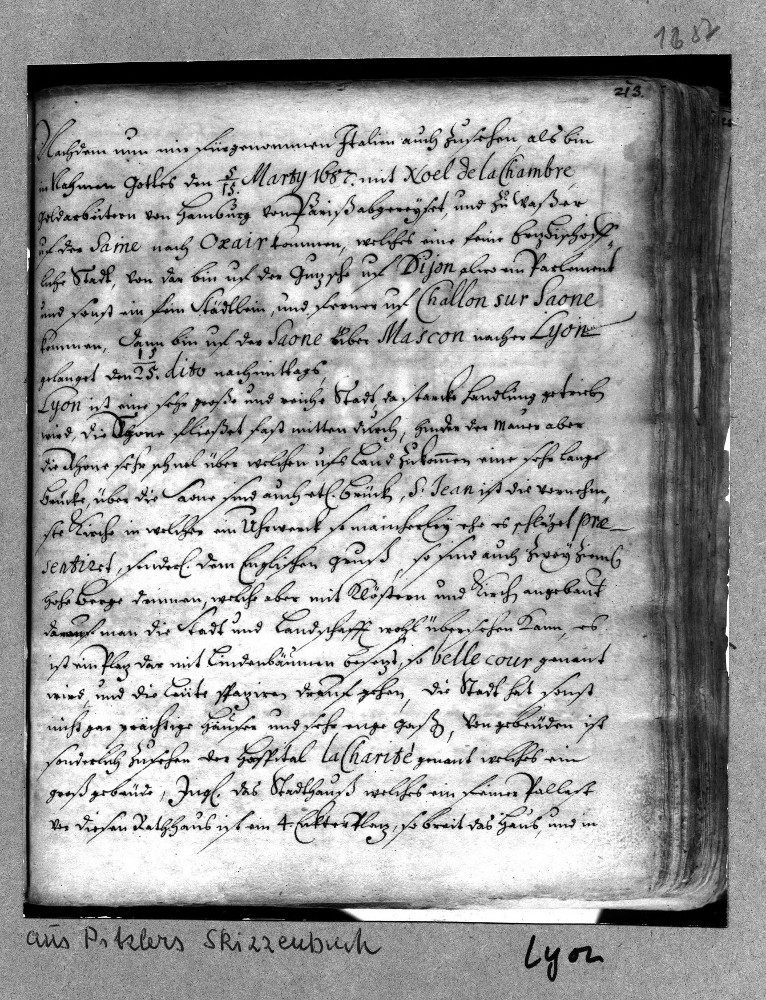 1687
213.
Nachdem nun mir fürgenommen Italien auch zusehen als bin
in Nahmen Gottes den 5/15. Marty 1687. mit Noel de la Chambre
Goldarbeitern von Hamburg von Pariß abgereyset, und zu Waßer
uf der Saine nach Oxair kommen, welches eine feine Ertzbischoff-
liche Stadt, von dar bin uf der uf Dijon alwo ein Parlement
und sonst ein fein Städtlein, und ferner uf Challon sur Saone
kommen, dann bin uf der Saone über Mascon nacher Lyon
gelanget den 15/25. dito nachmittags,
Lyon ist eine sehr große und reiche Stadt da starcke Handlung getrieben
wird, die Rhone fließet fast mitten durch, hinder der Mauer aber
die Rhone sehr schnel über welchen ufs Land zukommen eine sehr lange
Brücke, über die Saone sind auch etl. Brücken, S. Jean ist die vornehm-
ste Kirche in welcher ein Uhrwerck so mancherley ehe es schläget præ-
sentiret, sonderl. dem Englischen gruß, so sind auch zwey ziemlich
hohe Berge drinnen, welche aber mit Klöstern und Kirchen angebaut
darauf man die Stadt und Landschafft wohl übersehen kann, es
ist ein Plaz dar mit Lindenbäumen besezt, so belle cour genant
wird, und die Leüte spaziren drauf gehen, die Stadt hat sonst
nicht gar prächtige Häuser und sehr enge Gaßen, von gebeuden ist
sonderlich zusehen der Hospital la Charité genant welches ein
groß gebäude, Ingl. das Stadthauß welches ein feiner Pallast
vor diesen Rathhaus ist ein 4. Eckter Plaz, so breit das Haus, und in
aus Pitzlers Skizzenbuch
Lyon